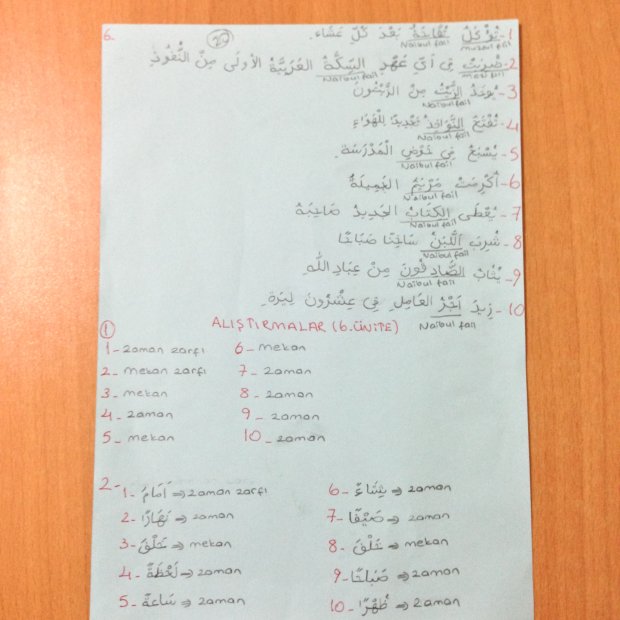 6-
20
1- تُؤْكَلُ تُفَّاحَةٌ بَعْدَ كُلِّ عَشَاء.
Naibul fail muzari fiil
2- ضُرِبَتْ فِي أَيِّ عَهْدٍ السِّكَّةُ العَرَبِيَّةُ الأُولَى مِنَ النُّقُودِ
Naibul fail mazi fiil
3- يُوخَذُ الزَّيْتُ مِنَ الزَّيْتُونَ
Naibul fail
4- تُفْتَحُ النَّوَافِذُ تَجْدِيدًا لِلْهَوَاءِ
Naibul fail
5- يُسْبَحُ فِي حَوْضِ الْمَدْرَسَة.
Naibul fail
6- أُكْرِمَتْ مَرْيَمُ الجَمِيلَةُ
Naibul fail
7- يُعْطَى الكِتَابُ الجَدِيدُ صَاحِبَهُ
Naibul fail
8- شُرِبَ اللَّبَنُ سَاخِنًا صَبَاحًا
Naibul fail
9- يُثَابُ الصَّادِقُونَ مِنْ عِبَادِ اللّٰه
Naibul fail
10- زِيدَ أَجْرُ العَامِلِ فِي عِشْرُونَ لِيرَة.
Naibul fail
1 ALIŞTIRMALAR (6.ÜNİTE)
1- zaman zarfı 6- mekan
2- mekan zarfı 7- zaman
3- mekan 8- zaman
4- zaman 9- zaman
5- mekan 10- zaman
2-
1- أَمَامَ ⇒ zaman zarfı 6- مِسَاءً ⇒ zaman
2- نَهَارًا ⇒ zaman 7- صَيْفًا ⇒ zaman
3- خَلْفَ ⇒ mekan 8- خَلْفَ ⇒ mekan
4- لَحْظَةً ⇒ zaman 9- صَبَاحًا ⇒ zaman
5- سَاعَةً ⇒ zaman 10- ظُهْرًا ⇒ zaman